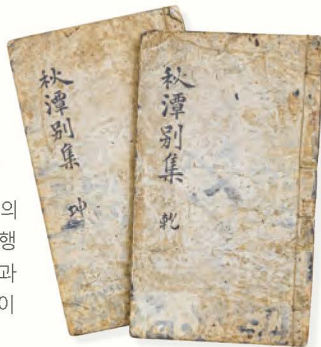 秋潭別集 坤
秋潭別集 乾
의
행
과
이